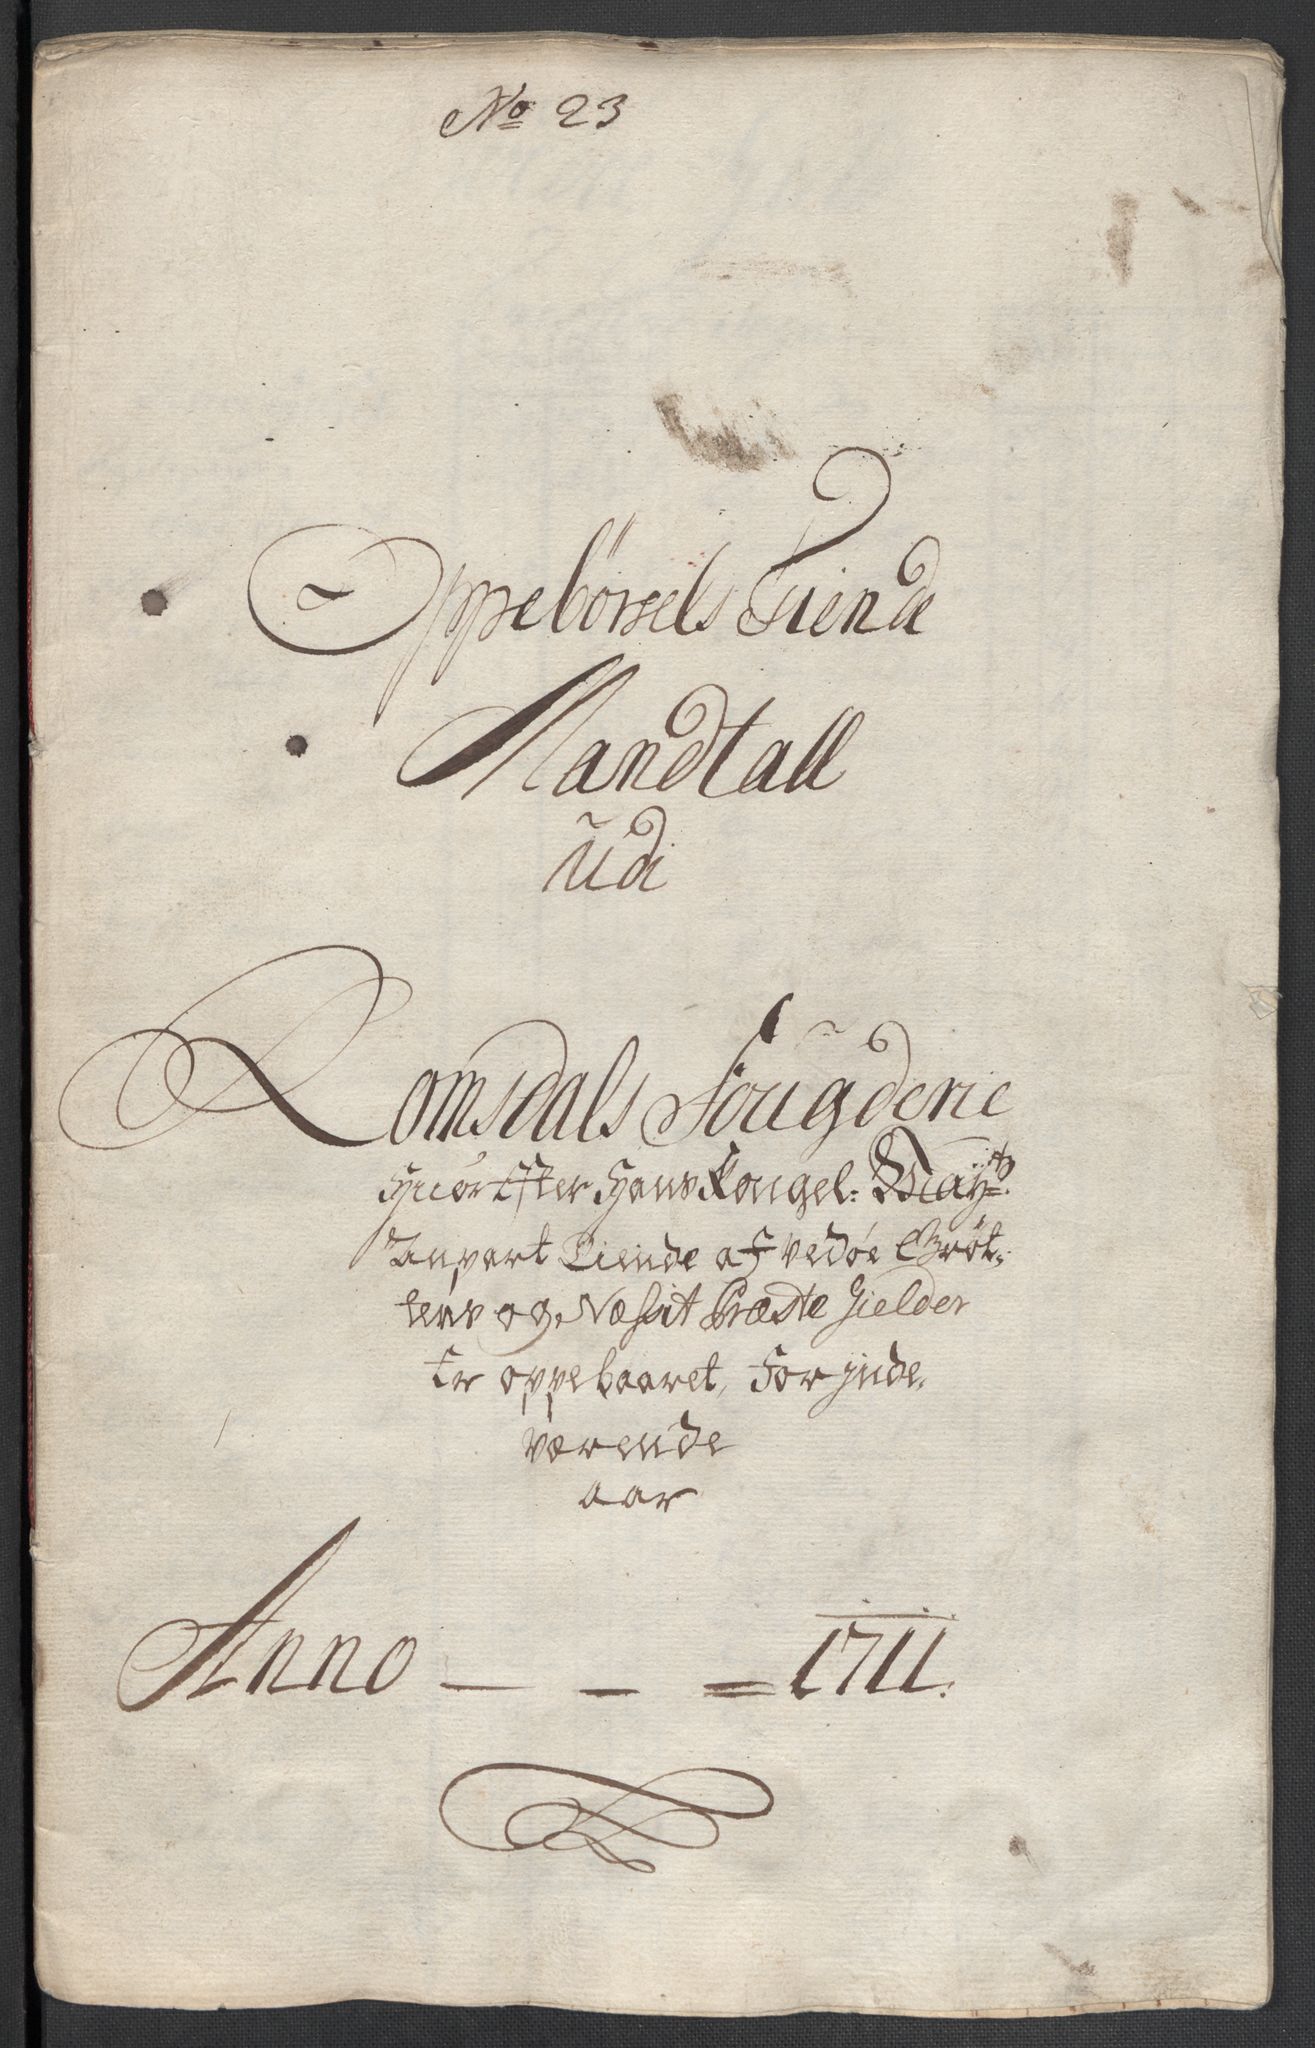 No 23
Oppebörsels Tiende
Mandtall
Udi
Romsdals Fougderie
Huor Efter Hans Kongel: Mayts:
Anpart Tiende af Vedøe Grøt-
tens og Næssit Præste Gielder
Er oppebaaret, for inde-
værende
aar
Anno - - = 1711.